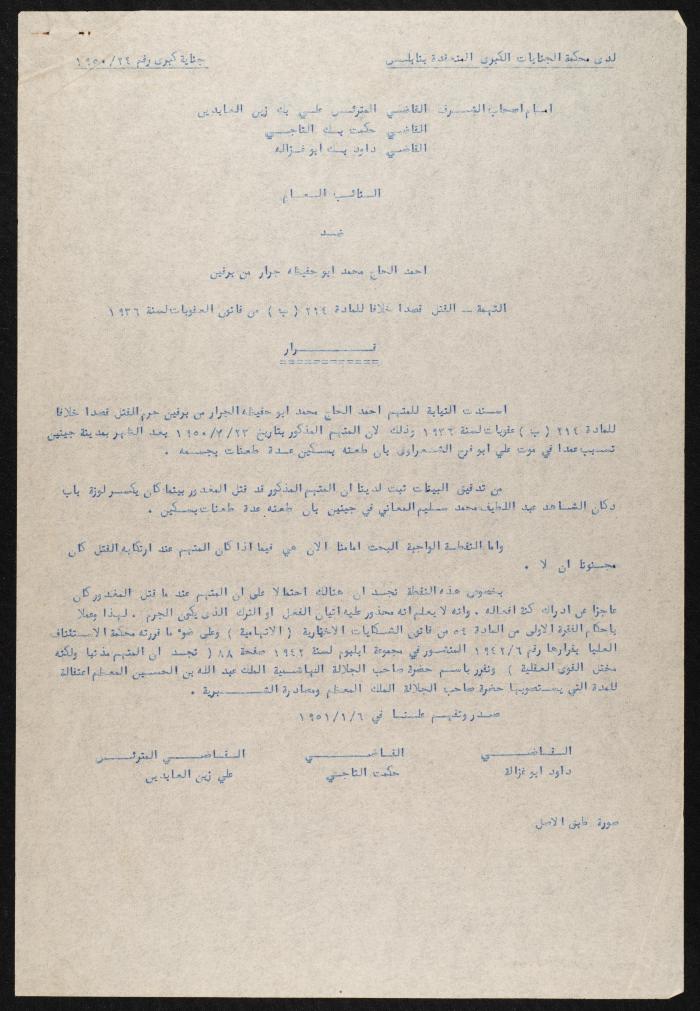 لدى محكمة الجنايات الكبرى المنعقدة بنابلس
جناية كبرى رقم ٢٤/١٩٥٠
امام اصحاب الشرف القاضي المترئس علي بك زين العابدين
القاضي حكمت بك التاجي
القاضي داود بك ابو غزاله
النائب العام
ضد
احمد الحاج محمد ابو حفيظه جرار من برقين
التهمة ــ القتل قصدا خلافا للمادة ٢١٤ ( ب ) من قانون العقوبات لسنة ١٩٣٦
قرار
اسندت النيابة للمتهم احمد الحاج محمد ابو حفيظه الجرار من برقين جرم القتل قصدا خلافا
للمادة ٢١٤ ( ب ) عقوبات لسنة ١٩٣٦ وذلك لان المتهم المذكور بتاريخ ٢٣/٣/١٩٥٠ بعد الظهر بمدينة جينين
تسبب عمدا في موت علي ابو فرح الشعراوى بان طعنه بسكين عدة طعنات بجسمه .
من تدقيق البينات ثبت لدينا ان المتهم المذكور قد قتل المغدور بينما كان يكسر لوزة باب
دكان الشاهد عبد اللطيف محمد سليم المعاني في جينين بان طعنه عدة طعنات بسكين .
واما النقطة الواجبة البحث امامنا الان هي فيما اذا كان المتهم عند ارتكابه القتل كان
مجنونا ان لا .
بخصوص هذه النقطة نجد ان هنالك احتمالا على ان المتهم عند ما قتل المغدور كان
عاجزا عن ادراك كنة افعاله . وانه لا يعلم انه محذور عليه اتيان الفعل او الترك الذى يكون الجرم . لهذا وعملا
باحكام الفقرة الاولى من المادة ٥٤ من قانون الشكايات الاخبارية ( الاتهامية ) وعلى ضوء ما قررته محكمة الاستئناف
العليا بقرارها رقم ٦/١٩٤٢ المنشور في مجموعة ابليوم لسنة ١٩٤٢ صفحة ٨٨ ( نجد ان المتهم مذنبا ولكنه
مختل القوى العقلية ) ونقرر باسم حضرة صاحب الجلالة الهاشمية الملك عبد الله بن الحسين المعظم اعتقالة
للمدة التي يستصوبها حضرة صاحب الجلالة الملك المعظم ومصادرة الشبرية .
صدر وتفهم علنا في ٦/١/١٩٥١
القاضي
القاضي
القاضي المترئس
داود ابو غزالة
حكمت التاجي
علي زين العابدين
صورة طبق الاصل